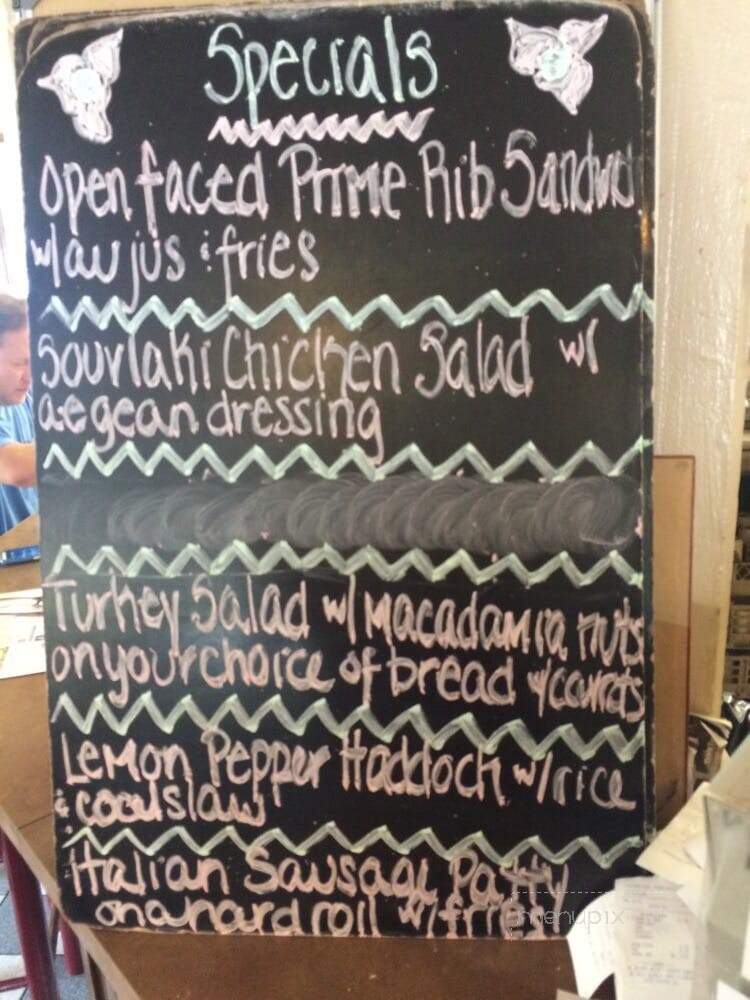 Specials
Open faced Prime Rib Sandwich
w/au jus & fries
Souvlaki Chicken Salad w/
aegean dressing
Turkey Salad w/ Macadamia nuts
on your choice of bread w/carrots
Lemon Pepper Haddock w/rice
& coculslaw
Italian Sausage Patty
on a hard roll w/fries
menupix